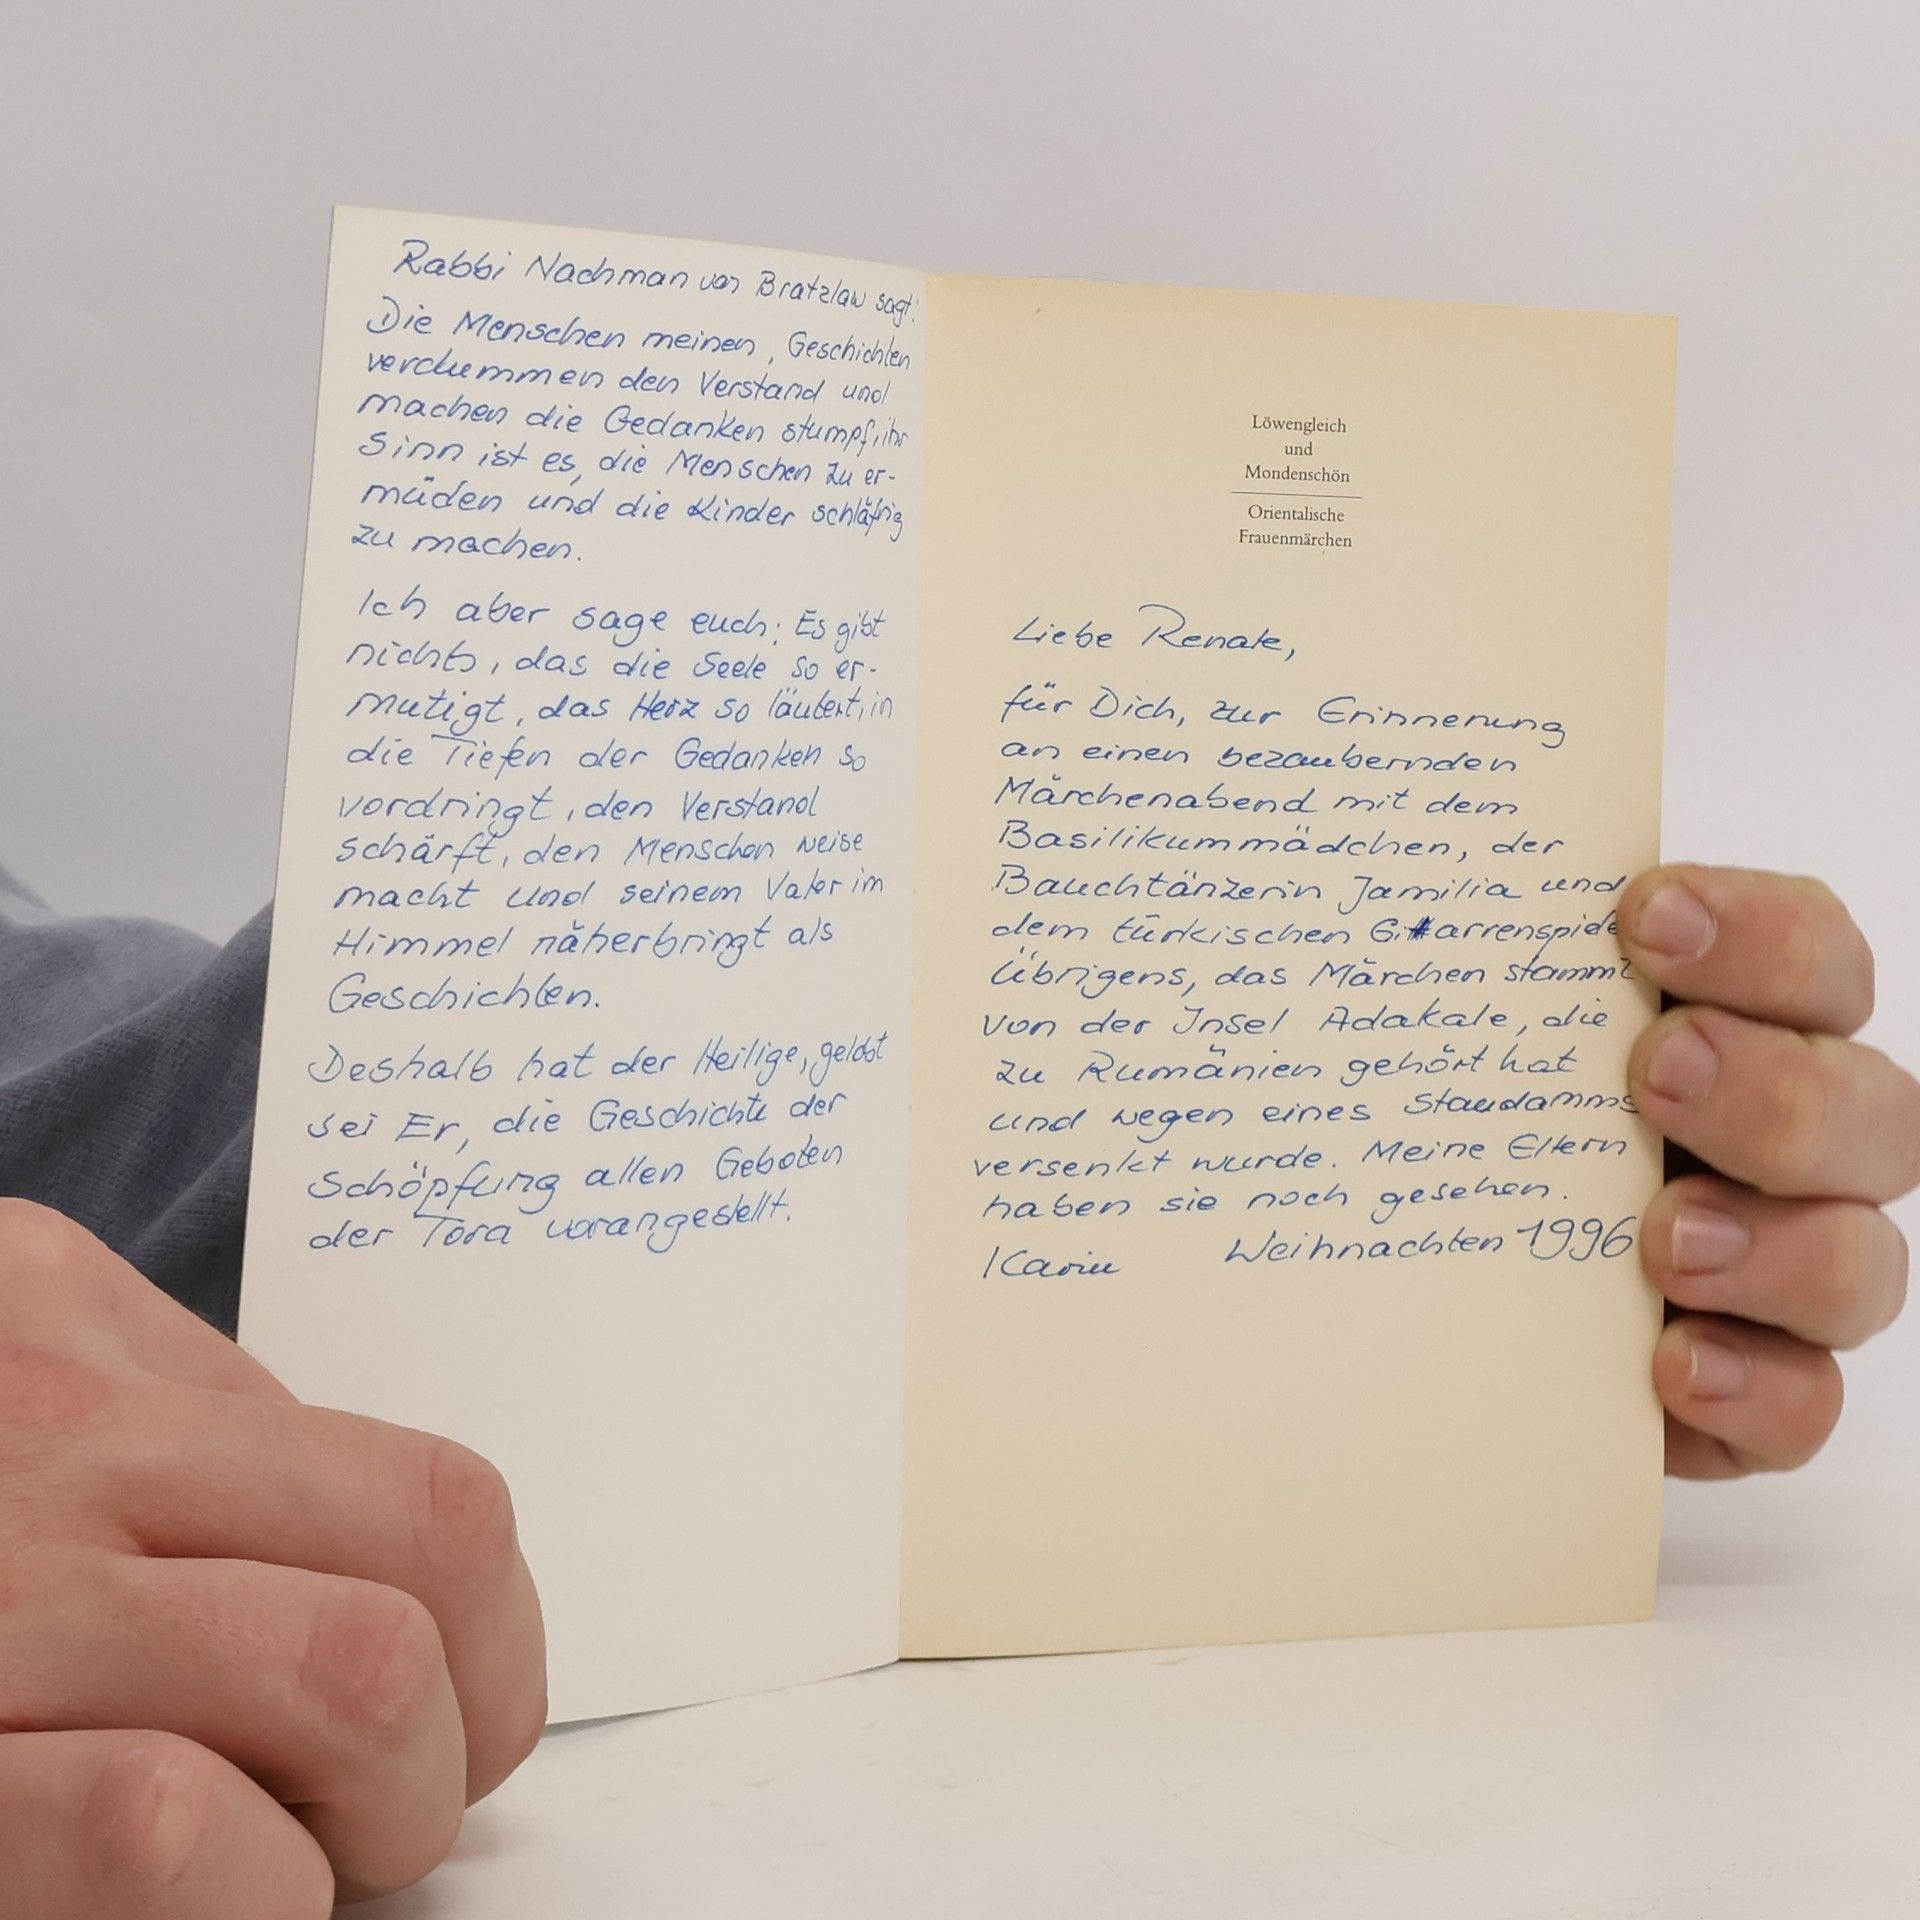 Rabbi Nachman von Bratzlaw sagt:
Die Menschen meinen, Geschichten
verdummen den Verstand und
machen die Gedanken stumpf, ihr
Sinn ist es, die Menschen zu er-
müden und die Kinder schläfrig
zu machen.
Ich aber sage euch: Es gibt
nichts, das die Seele so er-
mutigt, das Herz so läutert, in
die Tiefen der Gedanken so
vordringt, den Verstand
schärft, den Menschen weise
macht und seinem Vater im
Himmel näherbringt als
Geschichten.
Deshalb hat der Heilige, gelobt
sei Er, die Geschichte der
Schöpfung allen Geboten
der Tora vorangestellt.
Löwengleich
und
Mondenschön
Orientalische
Frauenmärchen
Liebe Renate,
für Dich, zur Erinnerung
an einen bezaubernden
Märchenabend mit dem
Basilikummädchen, der
Bauchtänzerin Jamilia und
dem türkischen Gitarrenspiele
Übrigens, das Märchen stammt
von der Insel Adakale, die
zu Rumänien gehört hat
und wegen eines Staudamms
versenkt wurde. Meine Eltern
haben sie noch gesehen.
Karin Weihnachten 1996